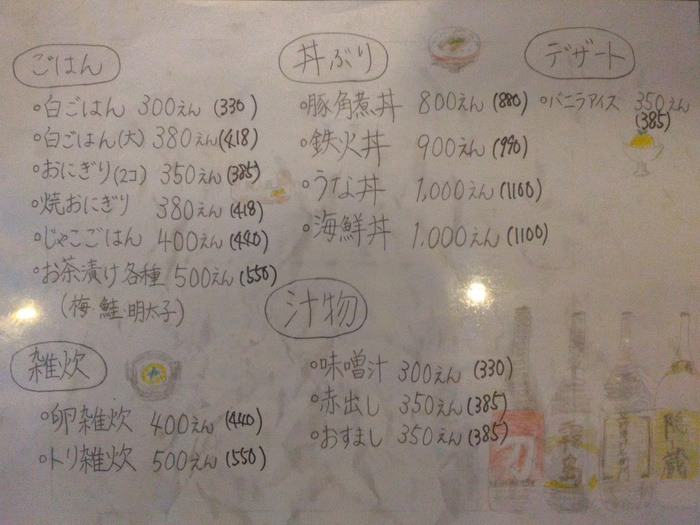 ごはん
•白ごはん 300えん (330)
•白ごはん(大) 380えん (418)
•おにぎり(2コ) 350えん (385)
•焼おにぎり 380えん (418)
•じゃこごはん 400えん (440)
•お茶漬け各種 500えん (550)
(梅・鮭・明太子)
雑炊
•卵雑炊 400えん (440)
•トリ雑炊 500えん (550)
丼ぶり
•豚角煮丼 800えん (880)
•鉄火丼 900えん (990)
•うな丼 1,000えん (1100)
•海鮮丼 1,000えん (1100)
汁物
•味噌汁 300えん (330)
•赤出し 350えん (385)
•おすまし 350えん (385)
デザート
•バニラアイス 350えん
(385)
刀
霧島
隠蔵